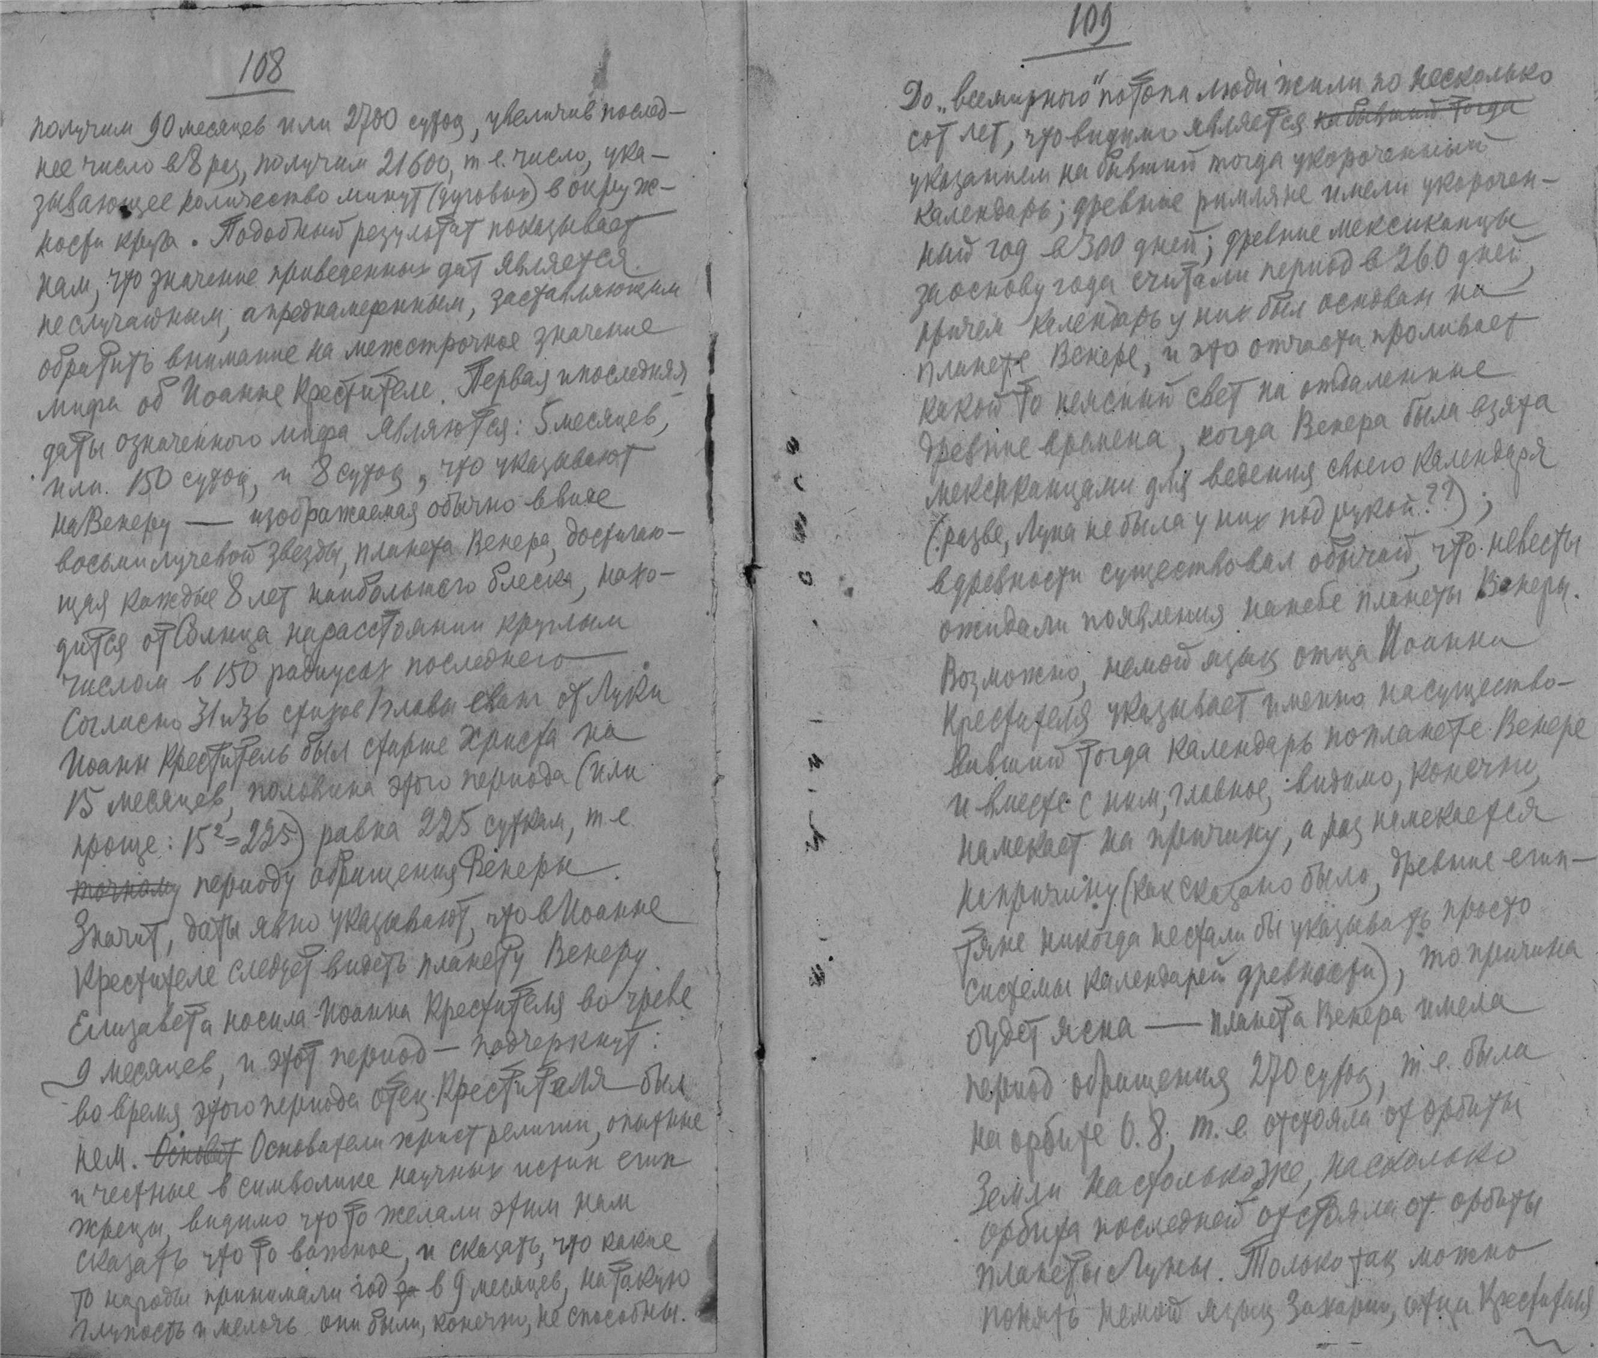 108
получим 90 месяцев или 2700 суток, увеличив послед-
нее число в 8 раз, получим 21600, т-е. число, ука-
зывающее количество минут (дуговых) в окруж-
ности круга. Подобный результат показывает
нам, что значение приведенных дат является
не случайным, а преднамеренным, заставляющим
обратить внимание на межстрочное значение
мифа об Иоанне Крестителе. Первая и последняя
даты означенного мифа являются: 5 месяцев,
или 150 суток, и 8 суток, что указывают
на Венеру — изображаемая обычно в виде
восьмилучевой звезды, планета Венера, достигаю-
щая каждые 8 лет наибольшего блеска, нахо-
дится от Солнца на расстоянии круглым
числом в 150 радиусах последнего
Согласно 31 и 36 стихов 1 главы еванг от Луки
Иоанн Креститель был старше Христа на
15 месяцев, половина этого периода (или
проще: 15²=225) равна 225 суткам, т-е.
точному периоду обращения Венеры.
Значит, даты явно указывают, что в Иоанне
Крестителе следует видеть планету Венеру.
Елизавета носила Иоанна Крестителя во чреве
9 месяцев, и этот период — подчеркнут:
во время этого периода отец Крестителя был
нем. Основат Основатели христ религии, опытные
и честные в символике научных истин егип
жрецы, видимо что то желали этим нам
сказать что то важное, и сказать, что какие
то народы принимали год за в 9 месяцев, на такую
глупость и мелочь они были, конечно, не способны.
109
До „всемирного" потопа люди жили по несколько
сот лет, что видимо является на бывший тогда
указанием на бывший тогда укороченный
календарь; древние римляне имели укорочен-
ный год в 300 дней; древние мексиканцы
за основу года считали период в 260 дней,
причем календарь у них был основан на
планете Венере, и это отчасти проливает
какой то неясный свет на отдаленные
древние времена, когда Венера была взята
мексиканцами для ведения своего календаря
(разве, Луна не была у них под рукой??);
в древности существовал обычай, что невесты
ожидали появления на небе планеты Венеры.
Возможно, немой язык отца Иоанна
Крестителя указывает именно на существо-
вавший тогда календарь по планете Венере
и вместе с ним, главное, видимо, конечно,
намекает на причину, а раз намекается
на причину (как сказано было, древние егип-
тяне никогда не стали бы указывать просто
системы календарей древности), то причина
будет ясна — планета Венера имела
период обращения 270 суток, т-е. была
на орбите 0.8, т.-е. отстояла от орбиты
Земли настолько же, насколько
орбита последней отстояла от орбиты
планеты Луны. Только так можно
понять немой язык Захарии, отца Крестителя